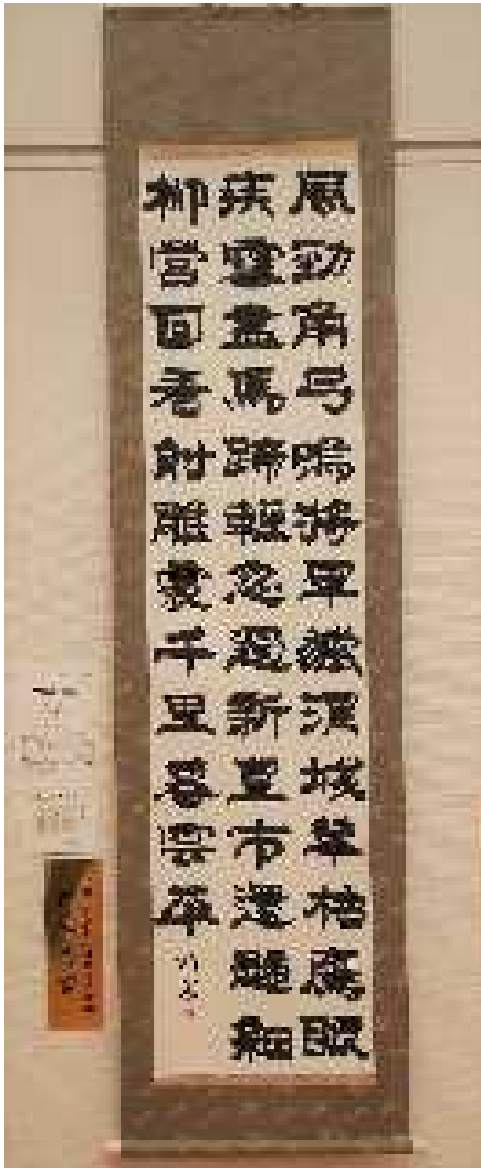 風勁角弓鳴將軍獵渭城草枯鷹眼
疾雪盡馬蹄輕忽過新豐市還歸細
柳營回看射雕處千里暮雲平